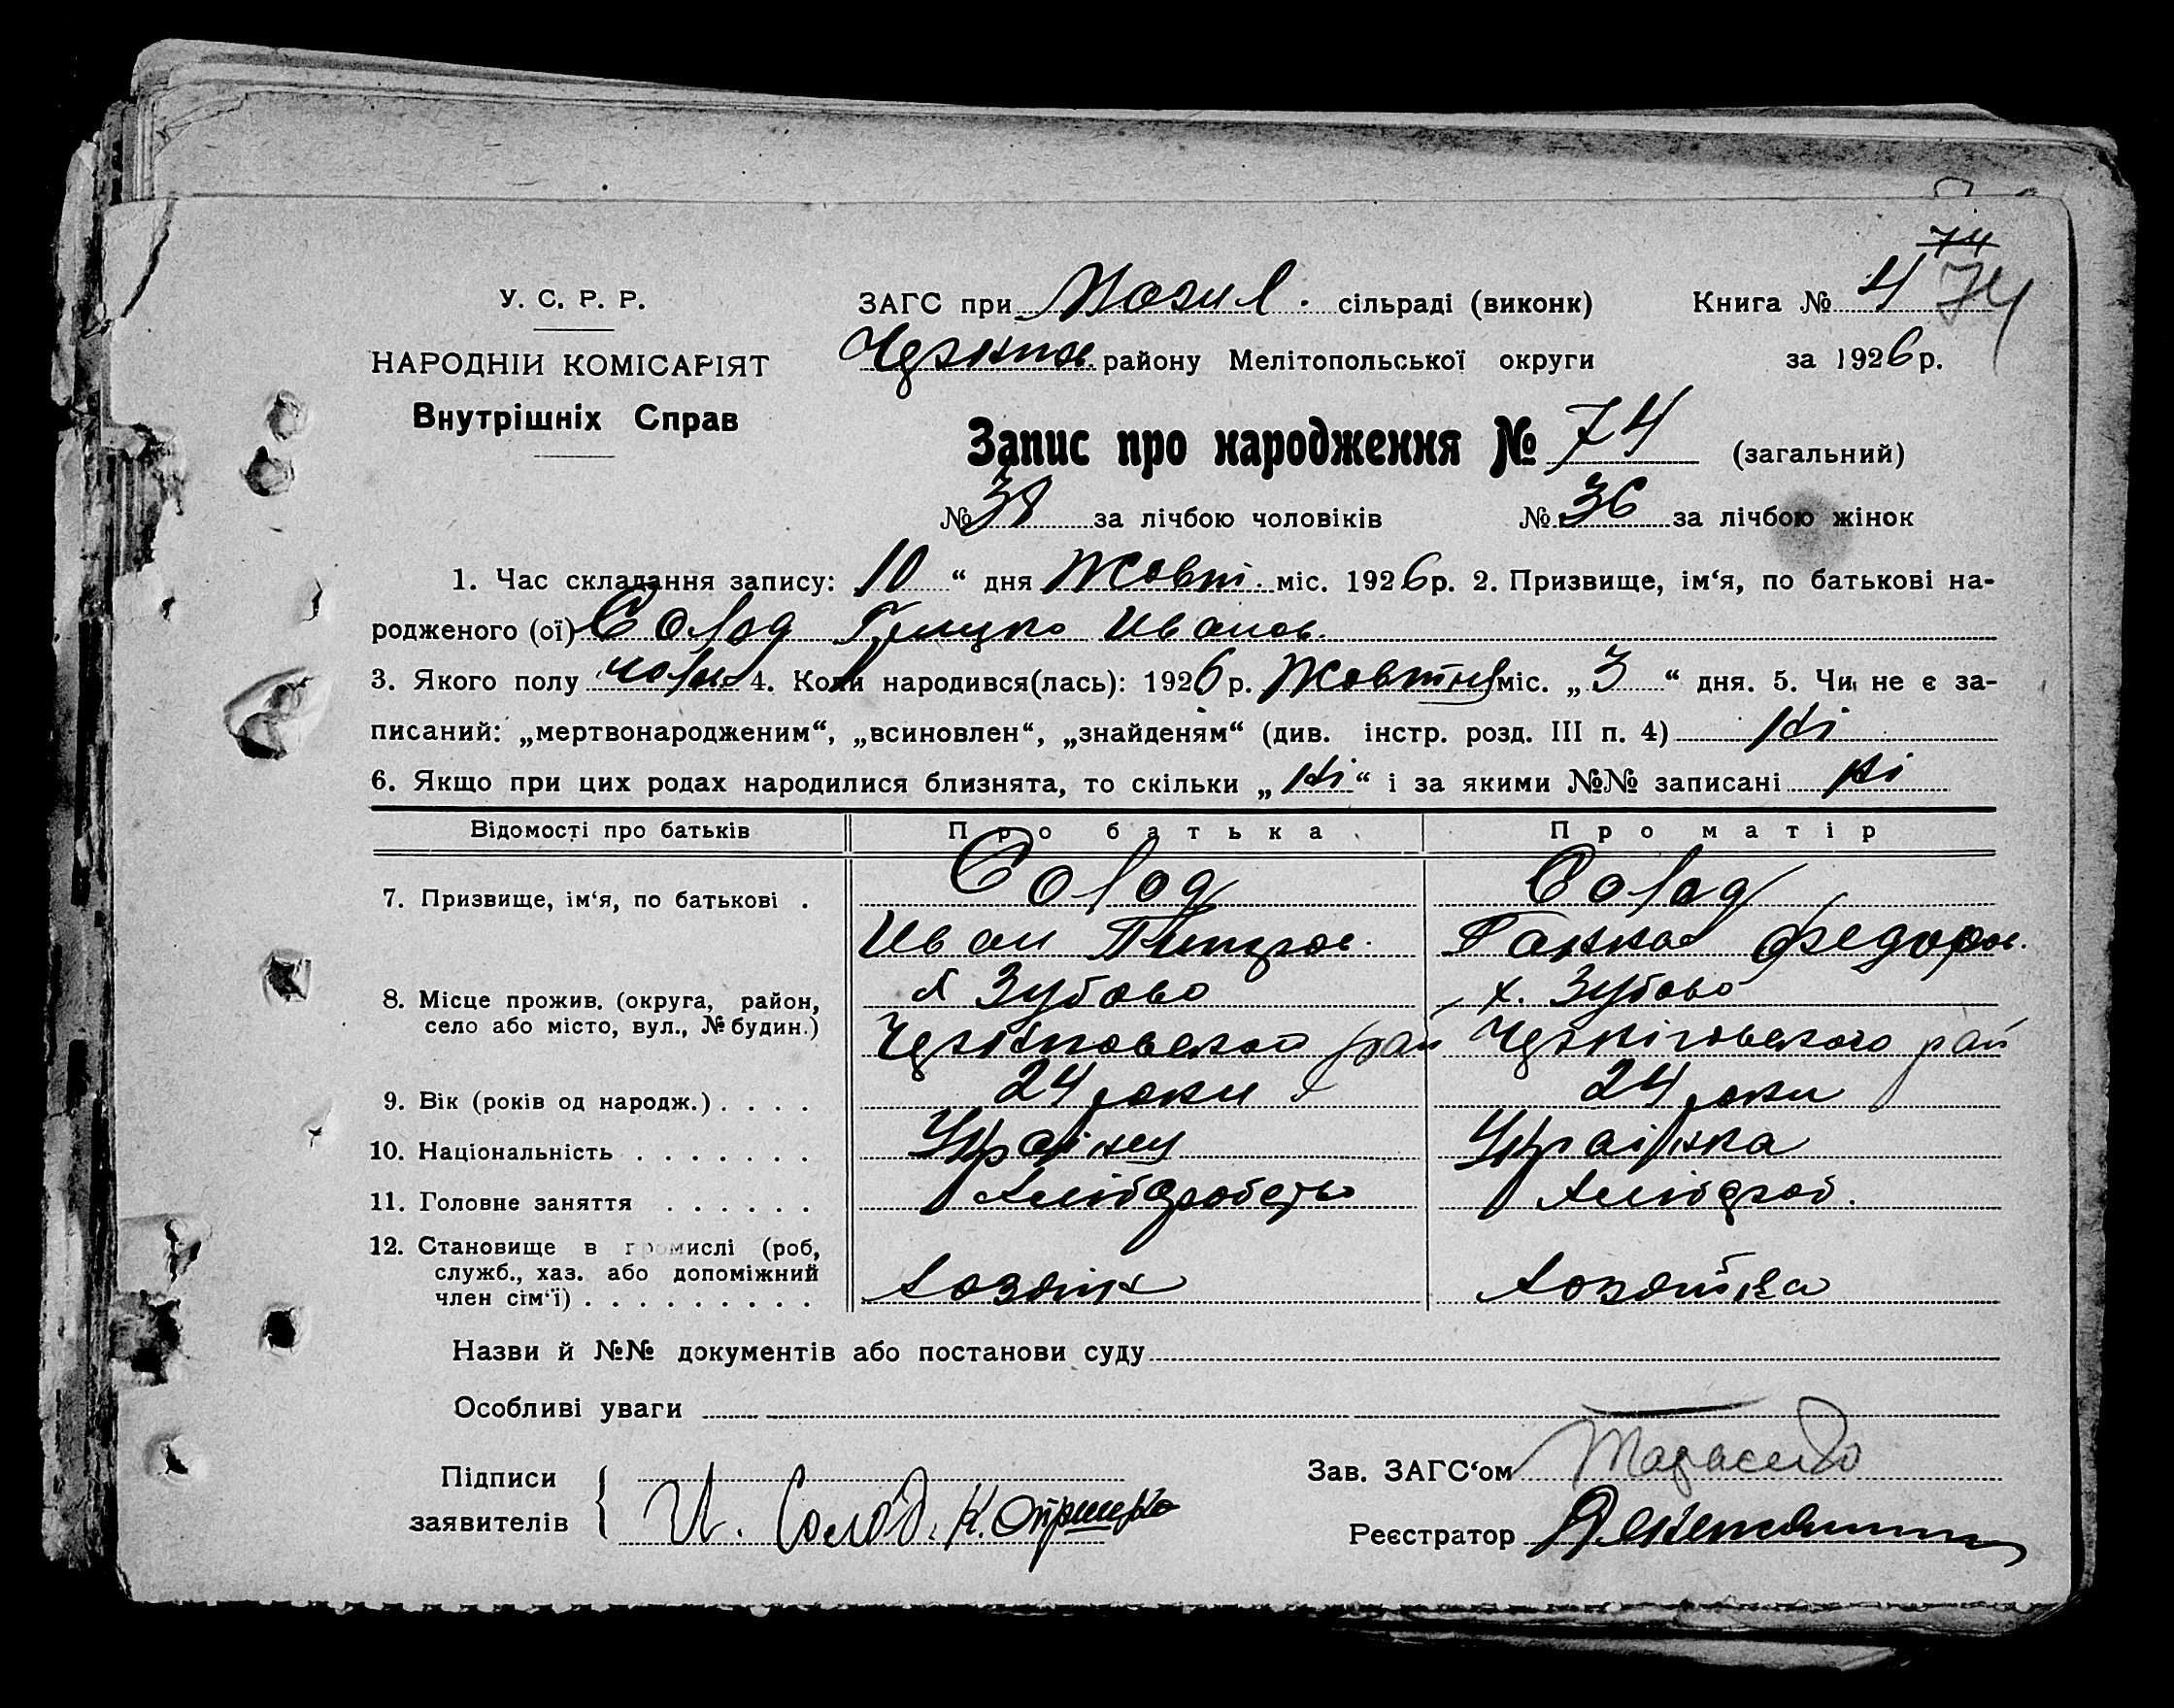 74
У. С. Р. Р.
ЗАГС при Могил. сільраді (виконк)
Книга № 4 74
НАРОДНІЙ КОМІСАРІЯТ
Внутрішніх Справ
району Мелітопольської округи
за 1926 р.
Запис про народження № 74 (загальний)
№ 38 за лічбою чоловіків № 36 за лічбою жінок
1. Час складання запису: 10 “ дня Жовт. міс. 1926 р. 2. Призвище, ім‘я, по батькові на-
родженого (ої) Солод Грицко Иванов.
3. Якого полу чолов. 4. Коли народився(лась): 1926 р. Жовтня міс. „ 3 “ дня. 5. Чи не є за-
писаний: „мертвонародженим“, „всиновлен“, „знайденям“ (див. інстр. розд. III п. 4) Ні
6. Якщо при цих родах народилися близнята, то скільки „ Ні “ і за якими №№ записані Ні
Відомості про батьків
Про батька
Про матір
7. Призвище, ім‘я, по батькові .
Солод
Солод
Иван
Ганна Федоров.
8. Місце прожив. (округа, район,
село або місто, вул., № будин.)
х Зубово
х. Зубово
рай
Черніговського рай
9. Вік (років од народж.) . . . .
24 роки
24 роки
10. Національність . . . . . . .
Українец
Українка
11. Головне заняття . . . . . .
Хліборобство
Хлібороб.
12. Становище в громислі (роб,
служб., хаз. або допоміжний
член сім‘ї) . . . . . . . . .
Хозяїн
Хозяйка
Назви й №№ документів або постанови суду
Особливі уваги
Підписи
заявителів
И. Солод.
Зав. ЗАГС‘ом Тарасенко
Реєстратор